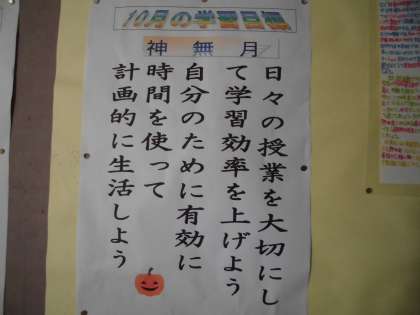 10月の学習目標
神無月
日々の授業を大切にし
て学習効率を上げよう
自分のために有効に
時間を使って
計画的に生活しよう